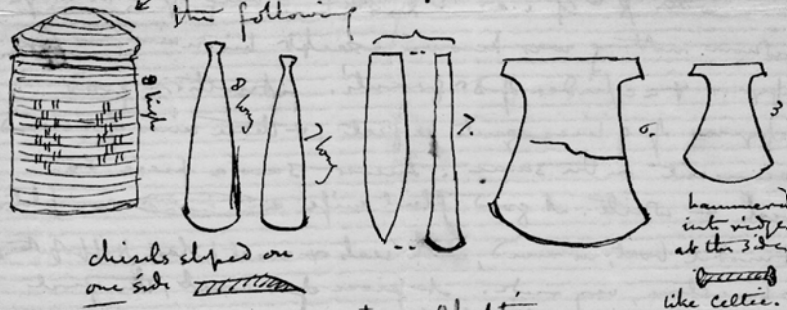 the following
8 high
8 long
7 long
7.
6.
3
chisels sloped on
one side
hammered
into ridges
at the sides
like Celtic.